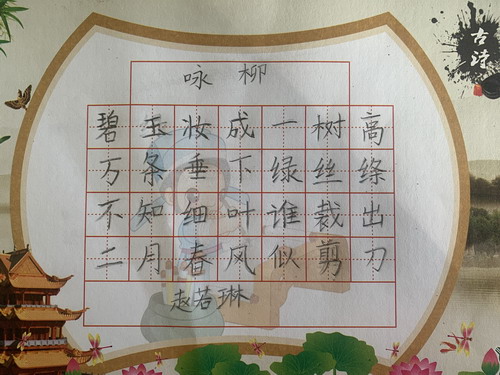 古诗
咏柳
碧玉妆成一树高
万条垂下绿丝绦
不知细叶谁裁出
二月春风似剪刀
赵若琳